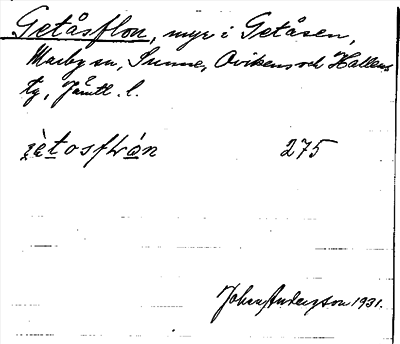 Getåsflon, myr i Getåsen,
Marby sn, Sunne, Ovikens och Hallens
tg, Jämtl. l.
275
John Andersson 1931.